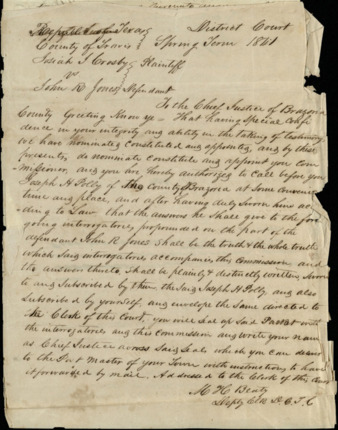 Republic of Texas } District Court
County of Travis } Spring Term 1841
Josiah J Crosby Plaintiff
vs
John R Jones Defendant
To the Chief Justice of Brazoria
County Greeting Know ye - That having Special Confi
dence in your integrity and ability in the taking of testimony
we have nominated constituted and appointed, and by these
presents, do nominate constitute and appoint you com
missioner, and you are hereby authorized to call before you
Joseph H Polly of the County Brazoria at Some convenient
time and place, and after having duly Sworn him accor
ding to Law that the answers he Shall give to the fore
going interrogatories propounded on the part of the
defendant John R Jones Shall be the truth & the whole truth
which Said interrogatories accompanies this Commission and
the answers thereto, Shall be plainly & distinctly written Sworn
to and Subscribed by him the Said Joseph H Polly and also
Subscribed by yourself and envelope the Same directed to
the Clerk of this Court, you will Seal up Said Packet with
the interrogatories and this Commission and write your name
as Chief Justice across Said Seals which you can deliver
to the Post Master of your Town with instructions to have
it forwarded by mail. Addressed to the Clerk of this Court
M. H. Beaty
Depty Clk D. C. T. C